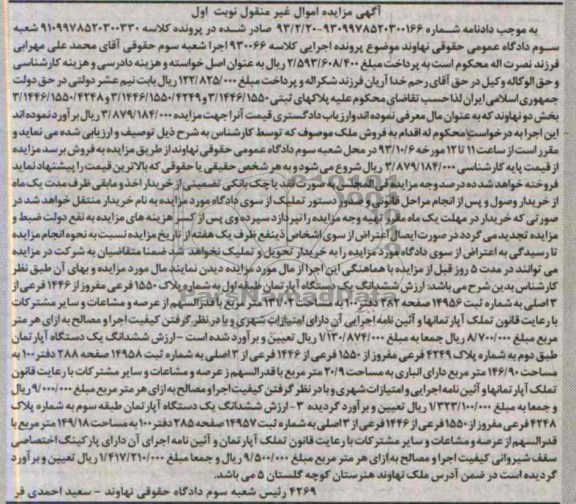 آگهی مزایده اموال غیر منقول نوبت اول
به موجب دادنامه شماره ۹۳۰۹۹۷۸۵۲۰۳۰۰۱۶۶-۹۳/۲/۲۰ صادر شده در پرونده کلاسه ۹۱۰۹۹۷۸۵۲۰۳۰۰۳۳۰ شعبه
سوم دادگاه عمومی حقوقی نهاوند موضوع پرونده اجرایی کلاسه ۹۳۰۰۶۶ اجرا شعبه سوم حقوقی آقای محمد علی مهرابی
فرزند نصرت اله محکوم است به پرداخت مبلغ ۲/۵۹۳/۶۰۸/۴۰۰ ریال به عنوان اصل خواسته و هزینه دادرسی و هزینه کارشناسی
و حق الوکاله وکیل در حق آقای رحم خدا آریان فرزند شکراله و پرداخت مبلغ ۱۲۲/۸۲۵/۰۰۰ ریال بابت نیم عشر دولتی در حق دولت
جمهوری اسلامی ایران لذا حسب تقاضای محکوم علیه پلاکهای ثبتی ۳/۱۴۴۶/۱۵۵۰ و ۳/۱۴۴۶/۱۵۵۰/۴۲۴۹ و ۳/۱۴۴۶/۱۵۵۰/۴۲۴۸
بخش دو نهاوند که به عنوان مال معرفی نموده اند و ارزیاب دادگستری قیمت آنرا جهت مزایده ۳/۸۷۹/۱۸۴/۰۰۰ ریال برآورد نموده اند
این اجرا به درخواست محکوم له اقدام به فروش ملک موصوف که توسط کارشناس به شرح ذیل توصیف و ارزیابی شده می نماید و
مقرر است از ساعت ۱۱ تا ۱۲ مورخه ۹۳/۱۰/۶ در محل شعبه سوم دادگاه عمومی حقوقی نهاوند از طریق مزایده به فروش برسد مزایده
از قیمت پایه کارشناسی ۳/۸۷۹/۱۸۴/۰۰۰ ریال شروع می شود و به هر شخص حقیقی یا حقوقی که بالاترین قیمت را پیشنهاد نماید
فروخته خواهد شد ده درصد وجه مزایده فی المجلس به صورت نقد یا چک بانکی تضمینی از خریدار اخذ و مابقی ظرف مدت یک ماه
از خریدار وصول و پس از انجام مراحل قانونی و صدور دستور تملیک از سوی دادگاه مورد مزایده به نام خریدار منتقل خواهد شد در
صورتی که خریدار در مهلت یک ماه مقرر تهیه وجه مزایده را نپردازد سپرده وی پس از کسر هزینه های مزایده به نفع دولت ضبط و
مزایده تجدید می گردد در صورت ایصال اعتراض از سوی اشخاص ذینفع ظرف یک هفته از تاریخ مزایده نسبت به نحوه انجام مزایده
تا رسیدگی به اعتراض از سوی دادگاه مورد مزایده را به خریدار تحویل و تملیک نخواهد شد ضمنا متقاضیان به شرکت در مزایده
می توانند در مدت ۵ روز قبل از مزایده با هماهنگی این اجرا از مال مورد مزایده دیدن نمایند مال مورد مزایده و بهای آن طبق نظر
کارشناس بدین شرح می باشد: ارزش ششدانگ یک دستگاه آپارتمان طبقه اول به شماره پلاک ۱۵۵۰ فرعی مفروز از ۱۴۴۶ فرعی از
۳ اصلی به شماره ثبت ۱۴۹۵۶ صفحه ۲۸۲ متر مربع با قدرالسهم از عرصه و مشاعات و سایر مشترکات
با رعایت قانون تملک آپارتمانها و آئین نامه اجرایی آن دارای امتیازات شهری و با در نظر گرفتن کیفیت اجرا و مصالح به ازای هر متر
مربع مبلغ ۸/۷۰۰/۰۰۰ ریال جمعا به مبلغ ۱/۱۳۰/۸۷۴/۰۰۰ ریال تعیین و برآورد شده است - ارزش ششدانگ یک دستگاه آپارتمان
طبق دوم به شماره پلاک ۴۲۴۹ فرعی مفروز از ۱۵۵۰ فرعی از ۱۴۴۶ فرعی از ۳ اصلی به شماره ثبت ۱۴۹۵۸ صفحه ۲۸۸ دفتر ۱۰۰ به
مساحت ۱۴۶/۹۰ متر مربع دارای انباری به مساحت ۲۰/۹ متر مربع با قدرالسهم ز عرصه و مشاعات و سایر مشترکات با رعایت قانون
تملک آپارتمانها و آئین نامه اجرایی و امتیازات شهری و با در نظر گرفتن کیفیت اجرا و مصالح به ازای هر متر مربع مبلغ ۹/۰۰۰/۰۰۰ ریال
و جمعا به مبلغ ۱/۳۲۳/۱۰۰/۰۰۰ ریال تعیین و برآورد گردیده ۳- ارزش ششدانگ یک دستگاه آپارتمان طبقه سوم به شماره پلاک
۴۲۴۸ فرعی مفروز از ۱۵۵۰ فرعی از ۱۴۴۶ فرعی از ۳ اصلی به شماره ثبت ۱۴۹۵۷ صفحه ۲۸۵ دفتر ۱۰۰ به مساحت ۱۴۹/۱۸ متر مربع با
قدرالسهم از عرصه و مشاعات و سایر مشترکات با رعایت قانون تملک آپارتمان و آئین نامه اجرای آن دارای پارکینگ اختصاصی
سقف شیروانی کیفیت اجرا و مصالح به ازای هر متر مربع مبلغ ۹/۵۰۰/۰۰۰ ریال و جمعا مبلغ ۱/۴۱۷/۲۱۰/۰۰۰ ریال تعیین و برآورد
گردیده است در ضمن آدرس ملک نهاوند هنرستان کوچه گلستان ۵ می باشد.
۴۲۶۹ رئیس شعبه سوم دادگاه حقوقی نهاوند - سعید احمدی فر